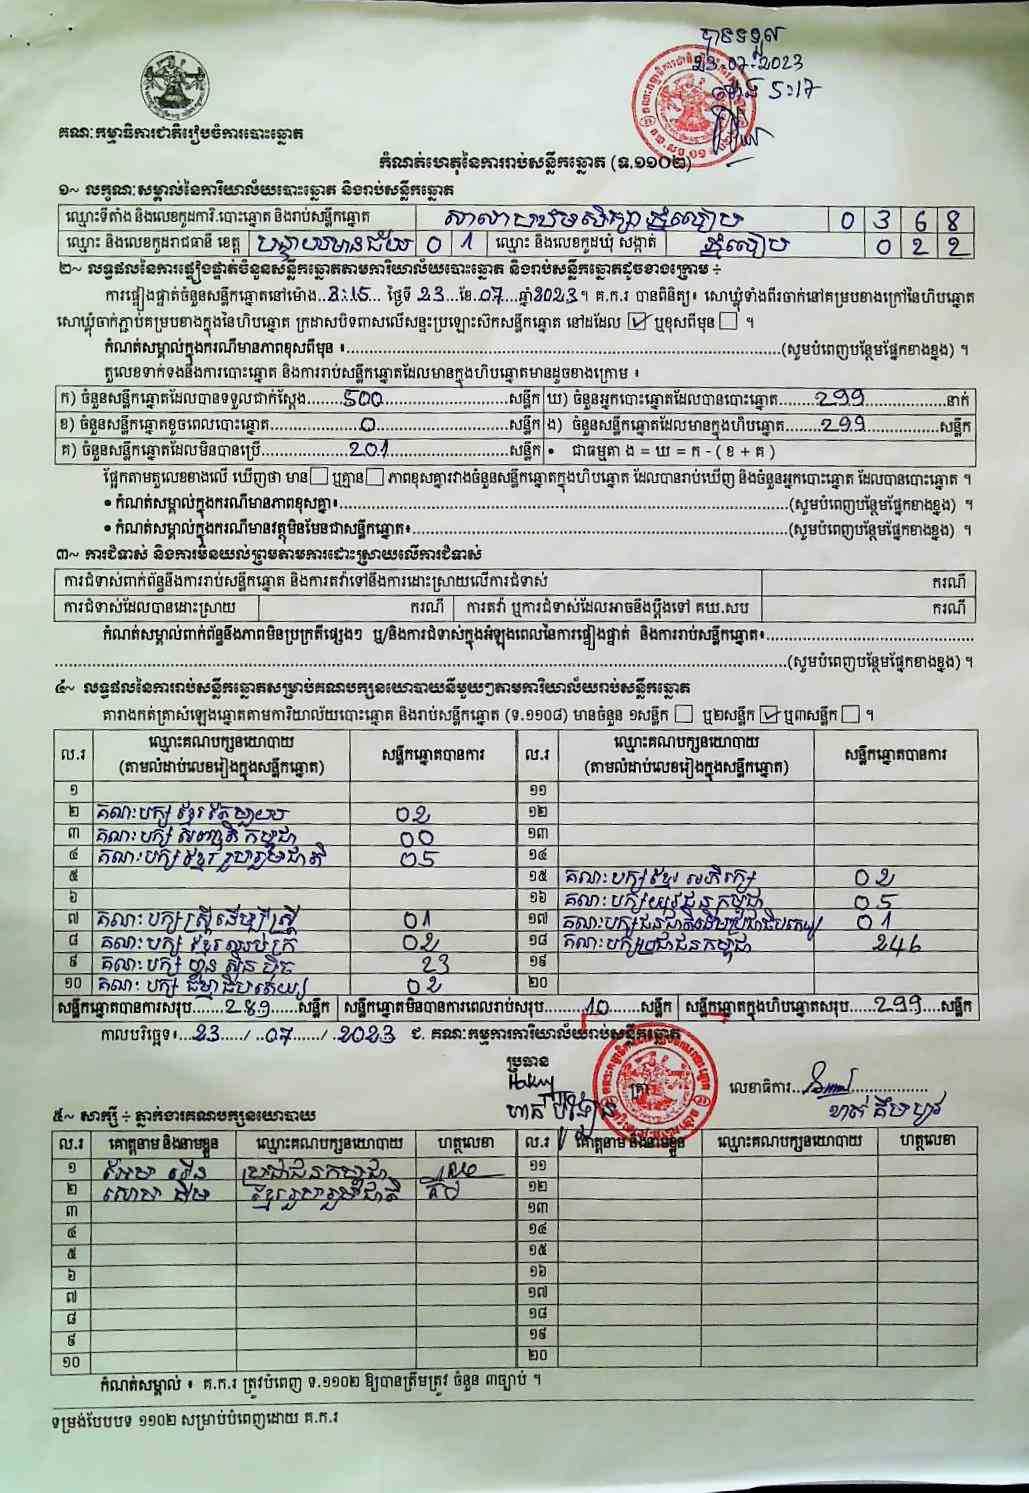 បានទទួល
23.07.2023
ម៉ោង 5:17
គណៈកម្មាធិការជាតិរៀបចំការបោះឆ្នោត
កំណត់ហេតុនៃការរាប់សន្លឹកឆ្នោត (ទ.១១០២)
១~ លក្ខណៈសម្គាល់នៃការិយាល័យបោះឆ្នោត និងរាប់សន្លឹកឆ្នោត
ឈ្មោះទីតាំង និងលេខកូដការិ.បោះឆ្នោត និងរាប់សន្លឹកឆ្នោត សាលាបឋមសិក្សាភ្នំលៀប 0 3 6 8
ឈ្មោះ និងលេខកូដរាជធានី ខេត្ត បន្ទាយមានជ័យ 0 1 ឈ្មោះ និងលេខកូដឃុំ សង្កាត់ ភ្នំលៀប 0 2 2
២~ លទ្ធផលនៃការផ្ទៀងផ្ទាត់ចំនួនសន្លឹកឆ្នោតតាមការិយាល័យបោះឆ្នោត និងរាប់សន្លឹកឆ្នោតដូចខាងក្រោម ÷
ការផ្ទៀងផ្ទាត់ចំនួនសន្លឹកឆ្នោតនៅម៉ោង..3:15... ថ្ងៃទី 23...ខែ.07....ឆ្នាំ2023។ គ.ក.រ បានពិនិត្យ៖ សោឃ្លុំទាំងពីរចាក់នៅគម្របខាងក្រៅនៃហិបឆ្នោត
សោឃ្លុំចាក់ភ្ជាប់គម្របខាងក្នុងនៃហិបឆ្នោត ក្រដាសបិទពាសលើសន្ទះប្រឡោះស៊កសន្លឹកឆ្នោត នៅដដែល ☑ ឬខុសពីមុន ☐ ។
កំណត់សម្គាល់ក្នុងករណីមានភាពខុសពីមុន ៖.....(សូមបំពេញបន្ថែមផ្នែកខាងខ្នង) ។
តួលេខទាក់ទងនឹងការបោះឆ្នោត និងការរាប់សន្លឹកឆ្នោតដែលមានក្នុងហិបឆ្នោតមានដូចខាងក្រោម ៖
ក) ចំនួនសន្លឹកឆ្នោតដែលបានទទួលជាក់ស្តែង.......500.......សន្លឹក ឃ) ចំនួនអ្នកបោះឆ្នោតដែលបានបោះឆ្នោត.......299.......នាក់
ខ) ចំនួនសន្លឹកឆ្នោតខូចពេលបោះឆ្នោត.......0.......សន្លឹក ង) ចំនួនសន្លឹកឆ្នោតដែលមានក្នុងហិបឆ្នោត.......299.......សន្លឹក
គ) ចំនួនសន្លឹកឆ្នោតដែលមិនបានប្រើ.......201.......សន្លឹក • ជាធម្មតា ង = ឃ = ក - ( ខ + គ )
ផ្អែកតាមតួលេខខាងលើ ឃើញថា មាន ☐ ឬគ្មាន ☐ ភាពខុសគ្នារវាងចំនួនសន្លឹកឆ្នោតក្នុងហិបឆ្នោត ដែលបានរាប់ឃើញ និងចំនួនអ្នកបោះឆ្នោត ដែលបានបោះឆ្នោត ។
• កំណត់សម្គាល់ក្នុងករណីមានភាពខុសគ្នា៖.....(សូមបំពេញបន្ថែមផ្នែកខាងខ្នង) ។
• កំណត់សម្គាល់ក្នុងករណីមានវត្ថុមិនមែនជាសន្លឹកឆ្នោត៖.....(សូមបំពេញបន្ថែមផ្នែកខាងខ្នង) ។
៣~ ការជំទាស់ និងការមិនយល់ព្រមតាមការដោះស្រាយលើការជំទាស់
ការជំទាស់ពាក់ព័ន្ធនឹងការរាប់សន្លឹកឆ្នោត និងការតវ៉ាទៅនឹងការដោះស្រាយលើការជំទាស់ ករណី
ការជំទាស់ដែលបានដោះស្រាយ ករណី ការតវ៉ា ឬការជំទាស់ដែលអាចនឹងប្តឹងទៅ គឃ.សប ករណី
កំណត់សម្គាល់ពាក់ព័ន្ធនឹងភាពមិនប្រក្រតីផ្សេងៗ ឬ/និងការជំទាស់ក្នុងអំឡុងពេលនៃការផ្ទៀងផ្ទាត់ និងការរាប់សន្លឹកឆ្នោត៖.....
.....(សូមបំពេញបន្ថែមផ្នែកខាងខ្នង) ។
៤~ លទ្ធផលនៃការរាប់សន្លឹកឆ្នោតសម្រាប់គណបក្សនយោបាយនីមួយៗតាមការិយាល័យរាប់សន្លឹកឆ្នោត
តារាងកត់ត្រាសំឡេងឆ្នោតតាមការិយាល័យបោះឆ្នោត និងរាប់សន្លឹកឆ្នោត (ទ.១១០៨) មានចំនួន ១សន្លឹក ☐ ឬ២សន្លឹក ☑ ឬ៣សន្លឹក ☐ ។
ល.រ ឈ្មោះគណបក្សនយោបាយ (តាមលំដាប់លេខរៀងក្នុងសន្លឹកឆ្នោត) សន្លឹកឆ្នោតបានការ ល.រ ឈ្មោះគណបក្សនយោបាយ (តាមលំដាប់លេខរៀងក្នុងសន្លឹកឆ្នោត) សន្លឹកឆ្នោតបានការ
១ ១១
២ គណៈបក្ស ខ្មែរ តែមួយ 02 ១២
៣ គណៈបក្ស សញ្ជាតិ កម្ពុជា 00 ១៣
៤ គណៈបក្ស ខ្មែរ រួបរួមជាតិ 05 ១៤
៥ ១៥ គណៈបក្ស ខ្មែរ អភិរក្ស 02
៦ ១៦ គណៈបក្សយុវជនកម្ពុជា 05
៧ គណៈបក្ស ស្ត្រី ដើម្បី ស្ត្រី 01 ១៧ គណៈបក្សជនជាតិដើមប្រជាធិបតេយ្យ 01
៨ គណៈបក្ស ខ្មែរ ឈប់ក្រ 02 ១៨ គណៈបក្សប្រជាជនកម្ពុជា 246
៩ គណៈបក្ស ហ្វ៊ុន ស៊ិន ប៉ិច 23 ១៩
១០ គណៈបក្ស ធម្មាធិបតេយ្យ 02 ២០
សន្លឹកឆ្នោតបានការសរុប.....289.....សន្លឹក សន្លឹកឆ្នោតមិនបានការពេលរាប់សរុប.....10.....សន្លឹក សន្លឹកឆ្នោតក្នុងហិបឆ្នោតសរុប.....299.....សន្លឹក
កាលបរិច្ឆេទ៖...23...../...07....../...2023 ជ. គណៈកម្មការការិយាល័យរាប់សន្លឹកឆ្នោត
ប្រធាន
ត្រា
លេខាធិការ.....
៥~ សាក្សី ÷ ភ្នាក់ងារគណបក្សនយោបាយ
ល.រ គោត្តនាម និងនាមខ្លួន ឈ្មោះគណបក្សនយោបាយ ហត្ថលេខា ល.រ គោត្តនាម និងនាមខ្លួន ឈ្មោះគណបក្សនយោបាយ ហត្ថលេខា
១ ប្រជាជនកម្ពុជា ១១
២ ខ្មែររួបរួមជាតិ ១២
៣ ១៣
៤ ១៤
៥ ១៥
៦ ១៦
៧ ១៧
៨ ១៨
៩ ១៩
១០ ២០
កំណត់សម្គាល់ ៖ គ.ក.រ ត្រូវបំពេញ ទ.១១០២ ឱ្យបានត្រឹមត្រូវ ចំនួន ៣ច្បាប់ ។
ទម្រង់បែបបទ ១១០២ សម្រាប់បំពេញដោយ គ.ក.រ